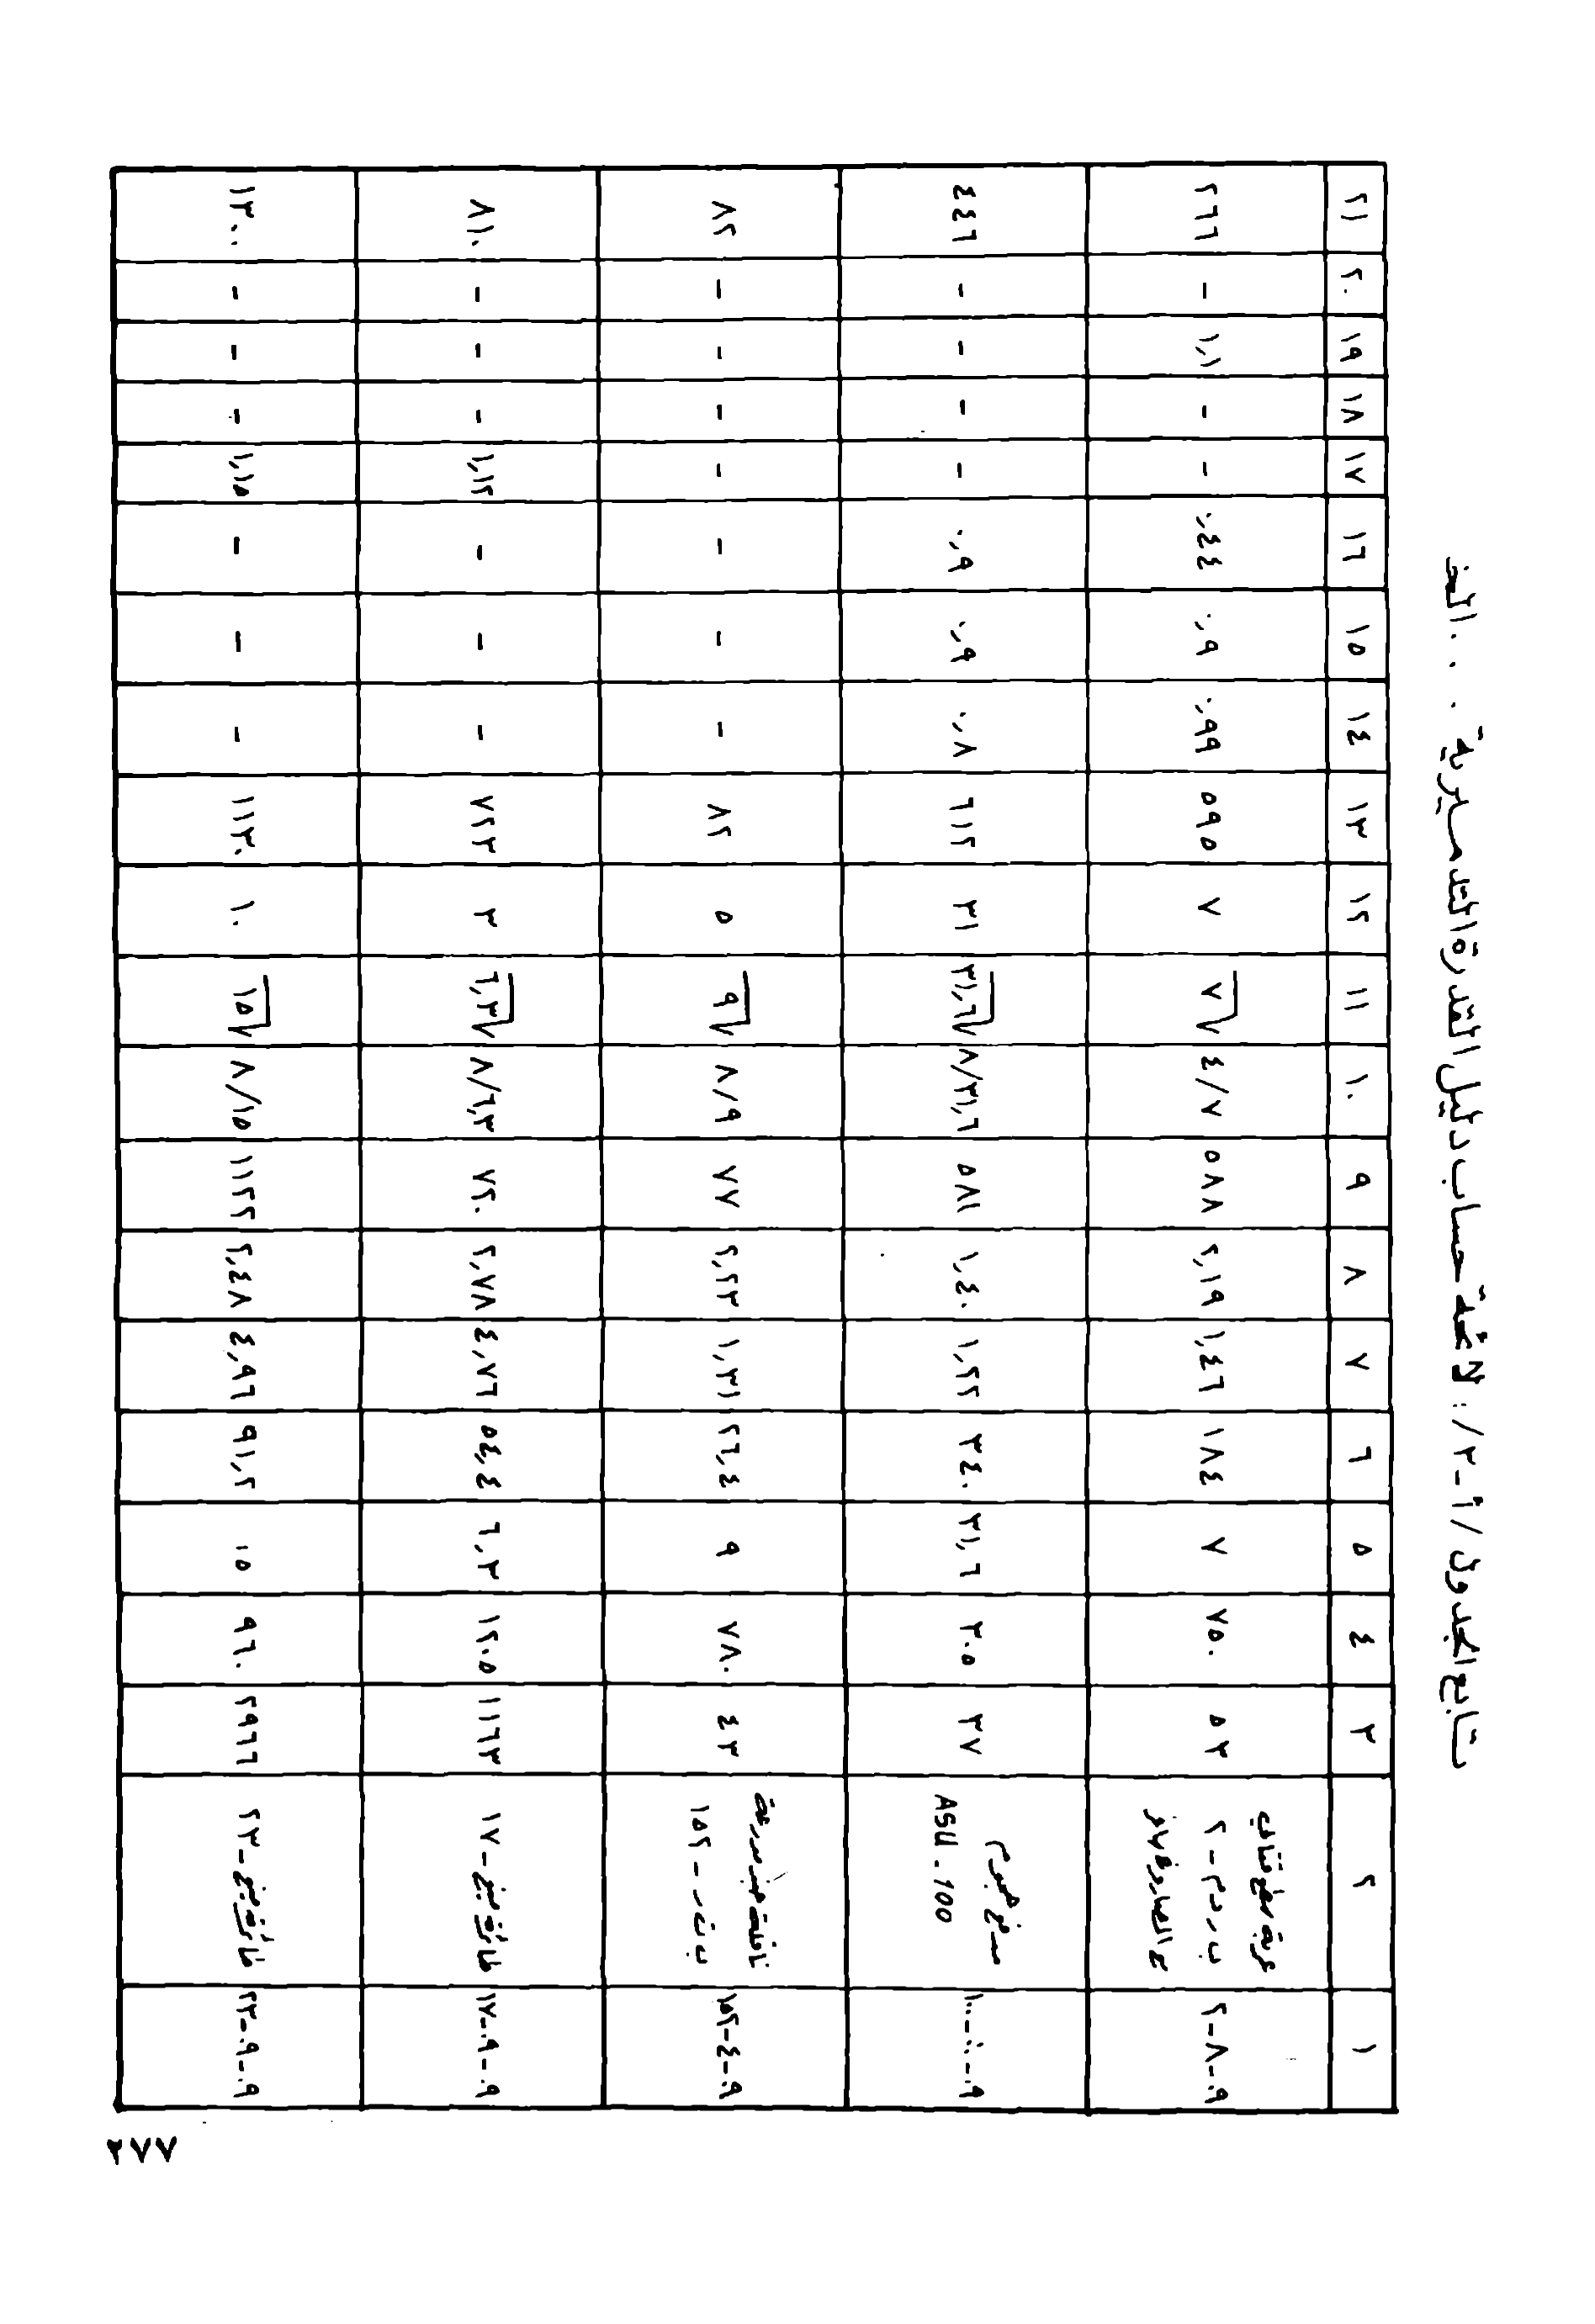 تابع الجدول /أ-٣/: لائحة حساب دليل القدرة التدميرية . . . الخ
١ ٢ ٣ ٤ ٥ ٦ ٧ ٨ ٩ ١٠ ١١ ١٢ ١٣ ١٤ ١٥ ١٦ ١٧ ١٨ ١٩ ٢٠ ٢١
٠٩-٨-٢ عربة سطع قتالب ب ر د م - ٢ ع الصاروخ ٥٣ ٧٥٠ ٧ ١٨٤ ١,٤٦ ٢,١٩ ٥٨٨ ٤/٧ √٧ ٧ ٥٩٥ ٠,٩٩ ٠,٩ ٠,٤٤ - - ١,١ - ٢٦٦
مدفع هجوم ASU-100 ٣٧ ٣٠٥ ٣١,٦ ٣٤٠ ١,٢٢ ١,٤٠ ٥٨١ ٨/٣١,٦ √٣١,٦ ٣١ ٦١٢ ٠,٨ ٠,٩ ٠,٩ - - - - ٤٤٦
٠٩-٤-١٥٢ ناقلة جند مدرعة ب ت ر - ١٥٢ ٤٣ ٧٨٠ ٩ ٢٦,٤ ١,٣١ ٢,٢٣ ٧٧ ٨/٩ √٩ ٥ ٨٢ - - - - - - - ٨٢
٠٩-٠٩-١٧ طائرة ميغ - ١٧ ١١٦٣ ١٢٠٥ ٦,٣ ٥٤,٤ ٤,٧٦ ٢,٧٨ ٧٢٠ ٨/٦,٣ √٦,٣ ٣ ٧٢٣ - - - ١,١٢ - - - ٨١٠
٠٩-٠٩-٢٣ طائرة ميغ - ٢٣ ٢٩٦٦ ٩٦٠ ١٥ ٩١,٢ ٤,٩٦ ٢,٤٨ ١١٢٢ ٨/١٥ √١٥ ١٠ ١١٣٠ - - - ١,١٥ - - - ١٣٠٠
٢٧٧